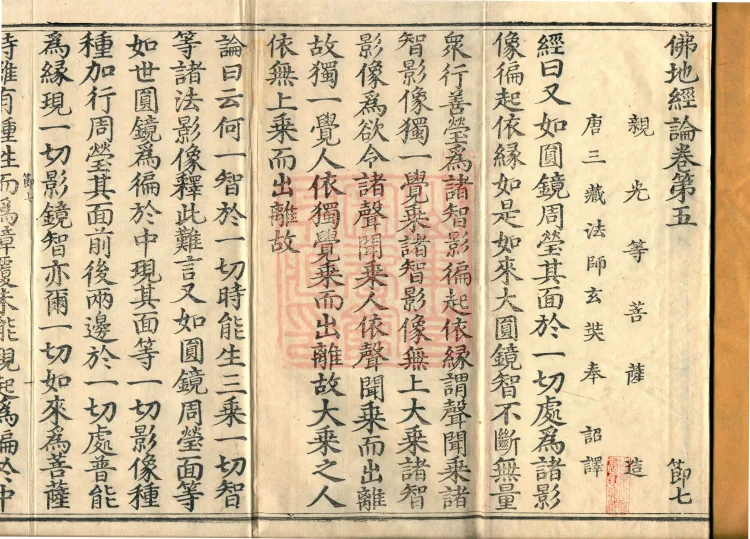 佛地經論卷第五 節七
親光等菩薩 造
唐三藏法師玄奘奉 詔譯
經曰又如圓鏡周瑩其面於一切處爲諸影
像徧起依緣如是如來大圓鏡智不斷無量
衆行善瑩爲諸智影徧起依緣謂聲聞乘諸
智影像獨一覺乘諸智影像無上大乘諸智
影像爲欲令諸聲聞乘人依聲聞乘而出離
故獨一覺人依獨覺乘而出離故大乘之人
依無上乘而出離故
論曰云何一智於一切時能生三乘一切智
等諸法影像釋此難言又如圓鏡周瑩面等
如世圓鏡爲徧於中現其面等一切影像種
種加行周瑩其面前後兩邊於一切處普能
爲緣現一切影鏡智亦爾一切如來爲菩薩
時雖有種生而爲障覆未能現起爲徧於中